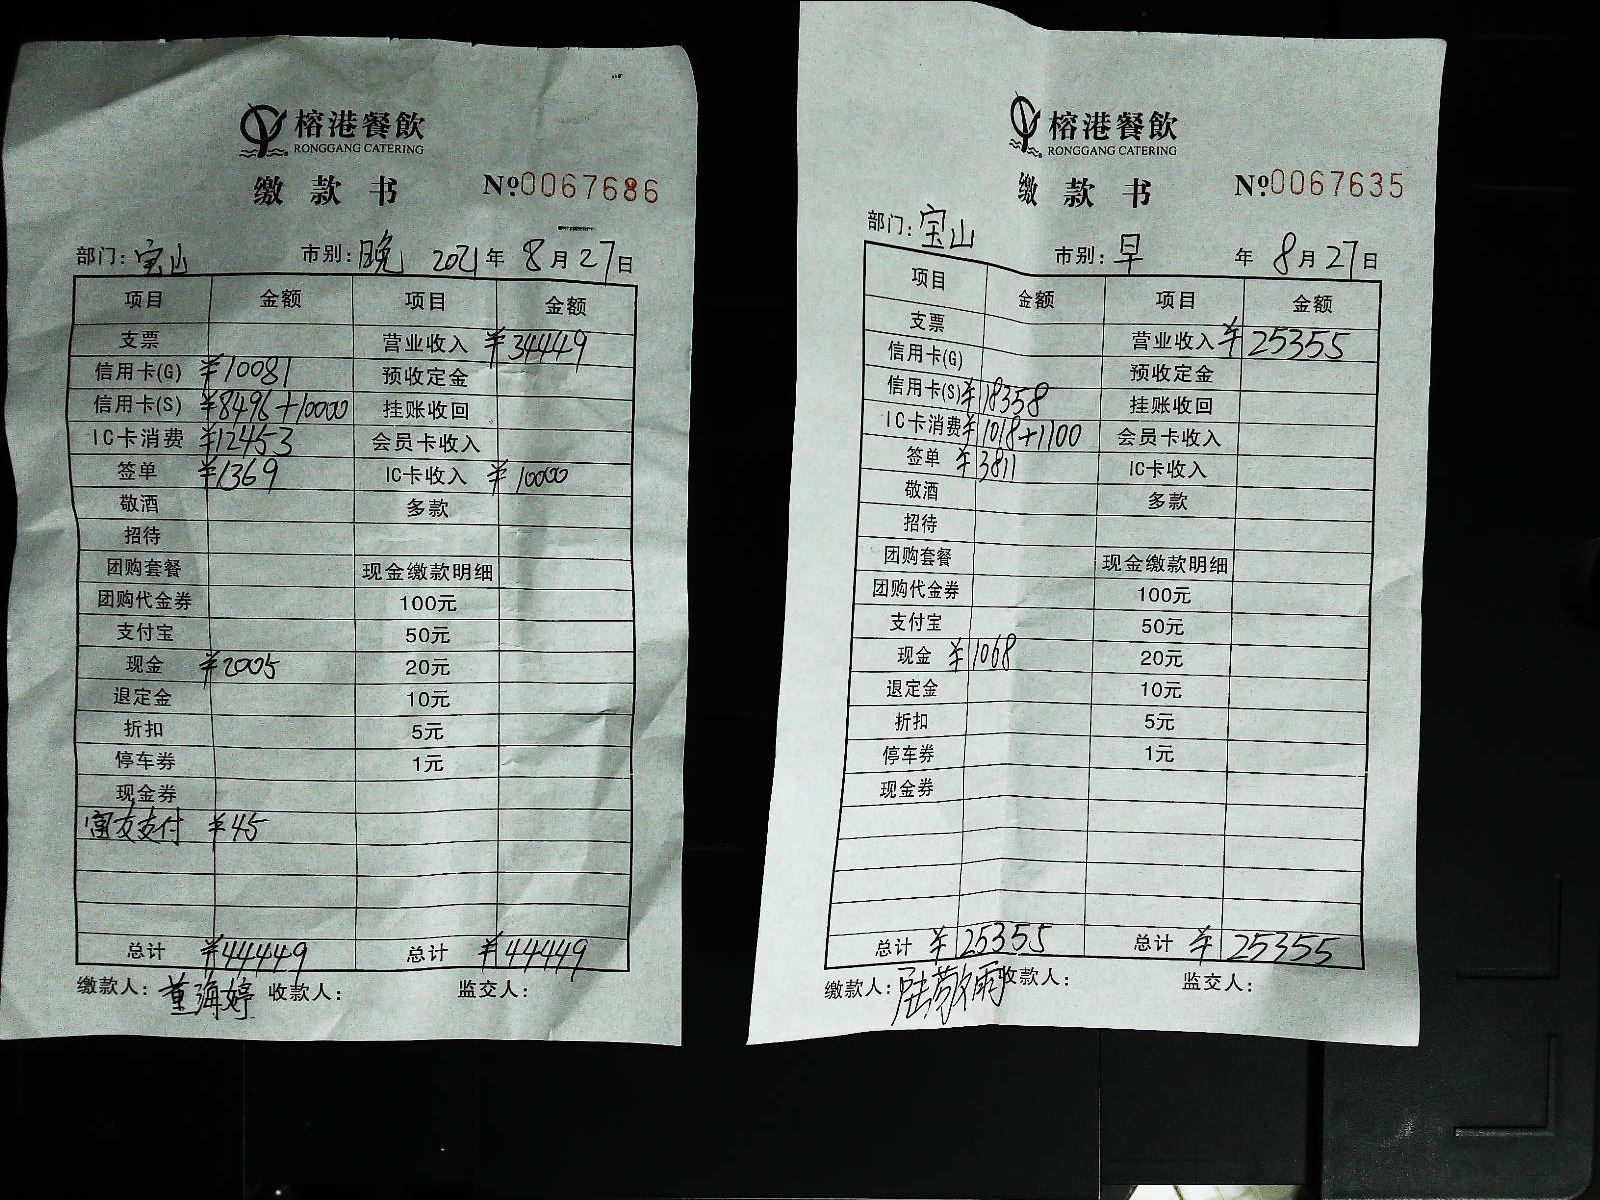 榕港餐飲
RONGGANG CATERING
缴款书 Nº0067686
部门：宝山 市别：晚 2021年8月27日
项目 金额 项目 金额
支票 营业收入 ¥34449
信用卡(G) ¥10081 预收定金
信用卡(S) ¥8496+10000 挂账收回
IC卡消费 ¥12453 会员卡收入
签单 ¥1369 IC卡收入 ¥10000
敬酒 多款
招待
团购套餐 现金缴款明细
团购代金券 100元
支付宝 50元
现金 ¥2005 20元
退定金 10元
折扣 5元
停车券 1元
现金券
富友支付 ¥45
总计 ¥44449 总计 ¥44449
缴款人：董海婷 收款人： 监交人：
榕港餐飲
RONGGANG CATERING
缴款书 Nº0067635
部门：宝山 市别：早 年8月27日
项目 金额 项目 金额
支票 营业收入 ¥25355
信用卡(G) 预收定金
信用卡(S) ¥18358 挂账收回
IC卡消费 ¥1018+1100 会员卡收入
签单 ¥3811 IC卡收入
敬酒 多款
招待
团购套餐 现金缴款明细
团购代金券 100元
支付宝 50元
现金 ¥1068 20元
退定金 10元
折扣 5元
停车券 1元
现金券
总计 ¥25355 总计 ¥25355
缴款人：陆敬雨 收款人： 监交人：